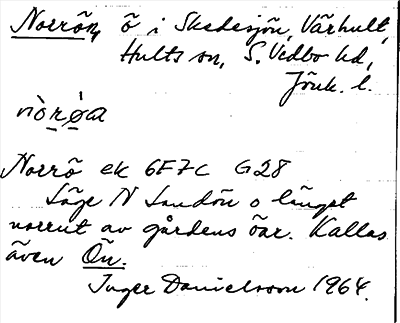 Norrön, ö i Skedesjön, Vårhult,
Hults sn, S. Vedbo hd,
Jönk. l.
nòrøa
Norrö ek 6F7C G28
Läge N Sandön o längst
norrut av gårdens öar. Kallas
även Ön.
Inger Danielsson 1964.